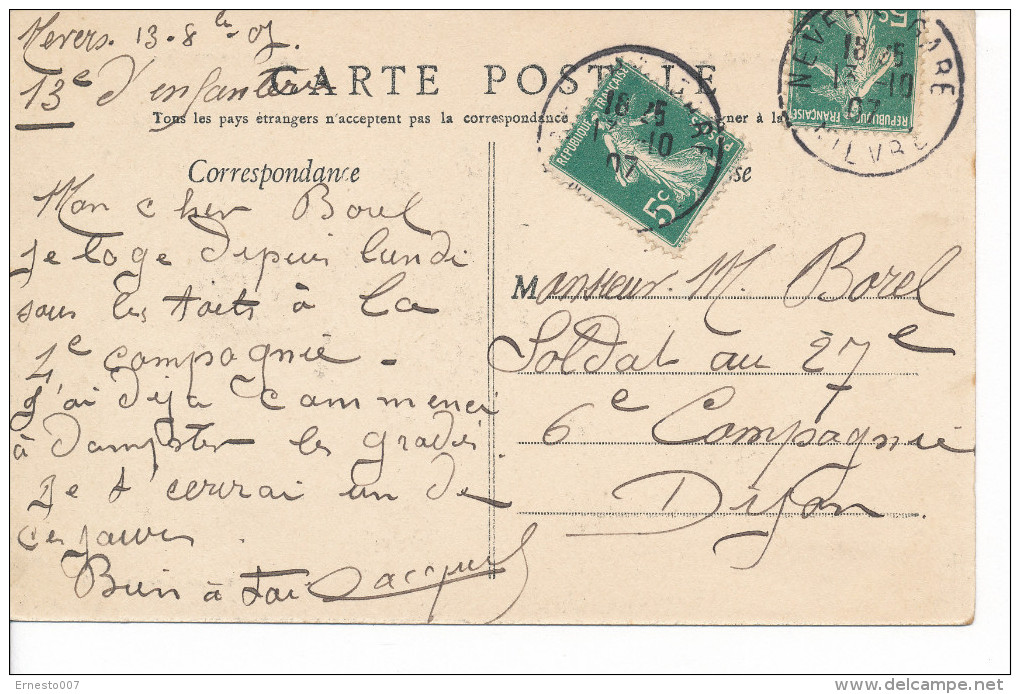 Nevers. 13. 8bre 07.
13e d'enfanterie
CARTE POSTALE
Tous les pays étrangers n'acceptent pas la correspondance
Correspondance
Mon cher Borel
je loge depuis lundi
sous les toits à la
1e compagnie.
J'ai déjà commencé
à dampster les gradés
Je t'écrirai un de
ces jours
Bien à toi Jacques
Monsieur. M. Borel
Soldat au 27e
6e Compagnie
Dijon
RÉPUBLIQUE FRANÇAISE
POSTES
5c
18 25
10
07
5c
RÉPUBLIQUE FRANÇAISE
NEVERS GARE
18 25
13 - 10
07
NIÈVRE
Ernesto007
www.delcampe.net